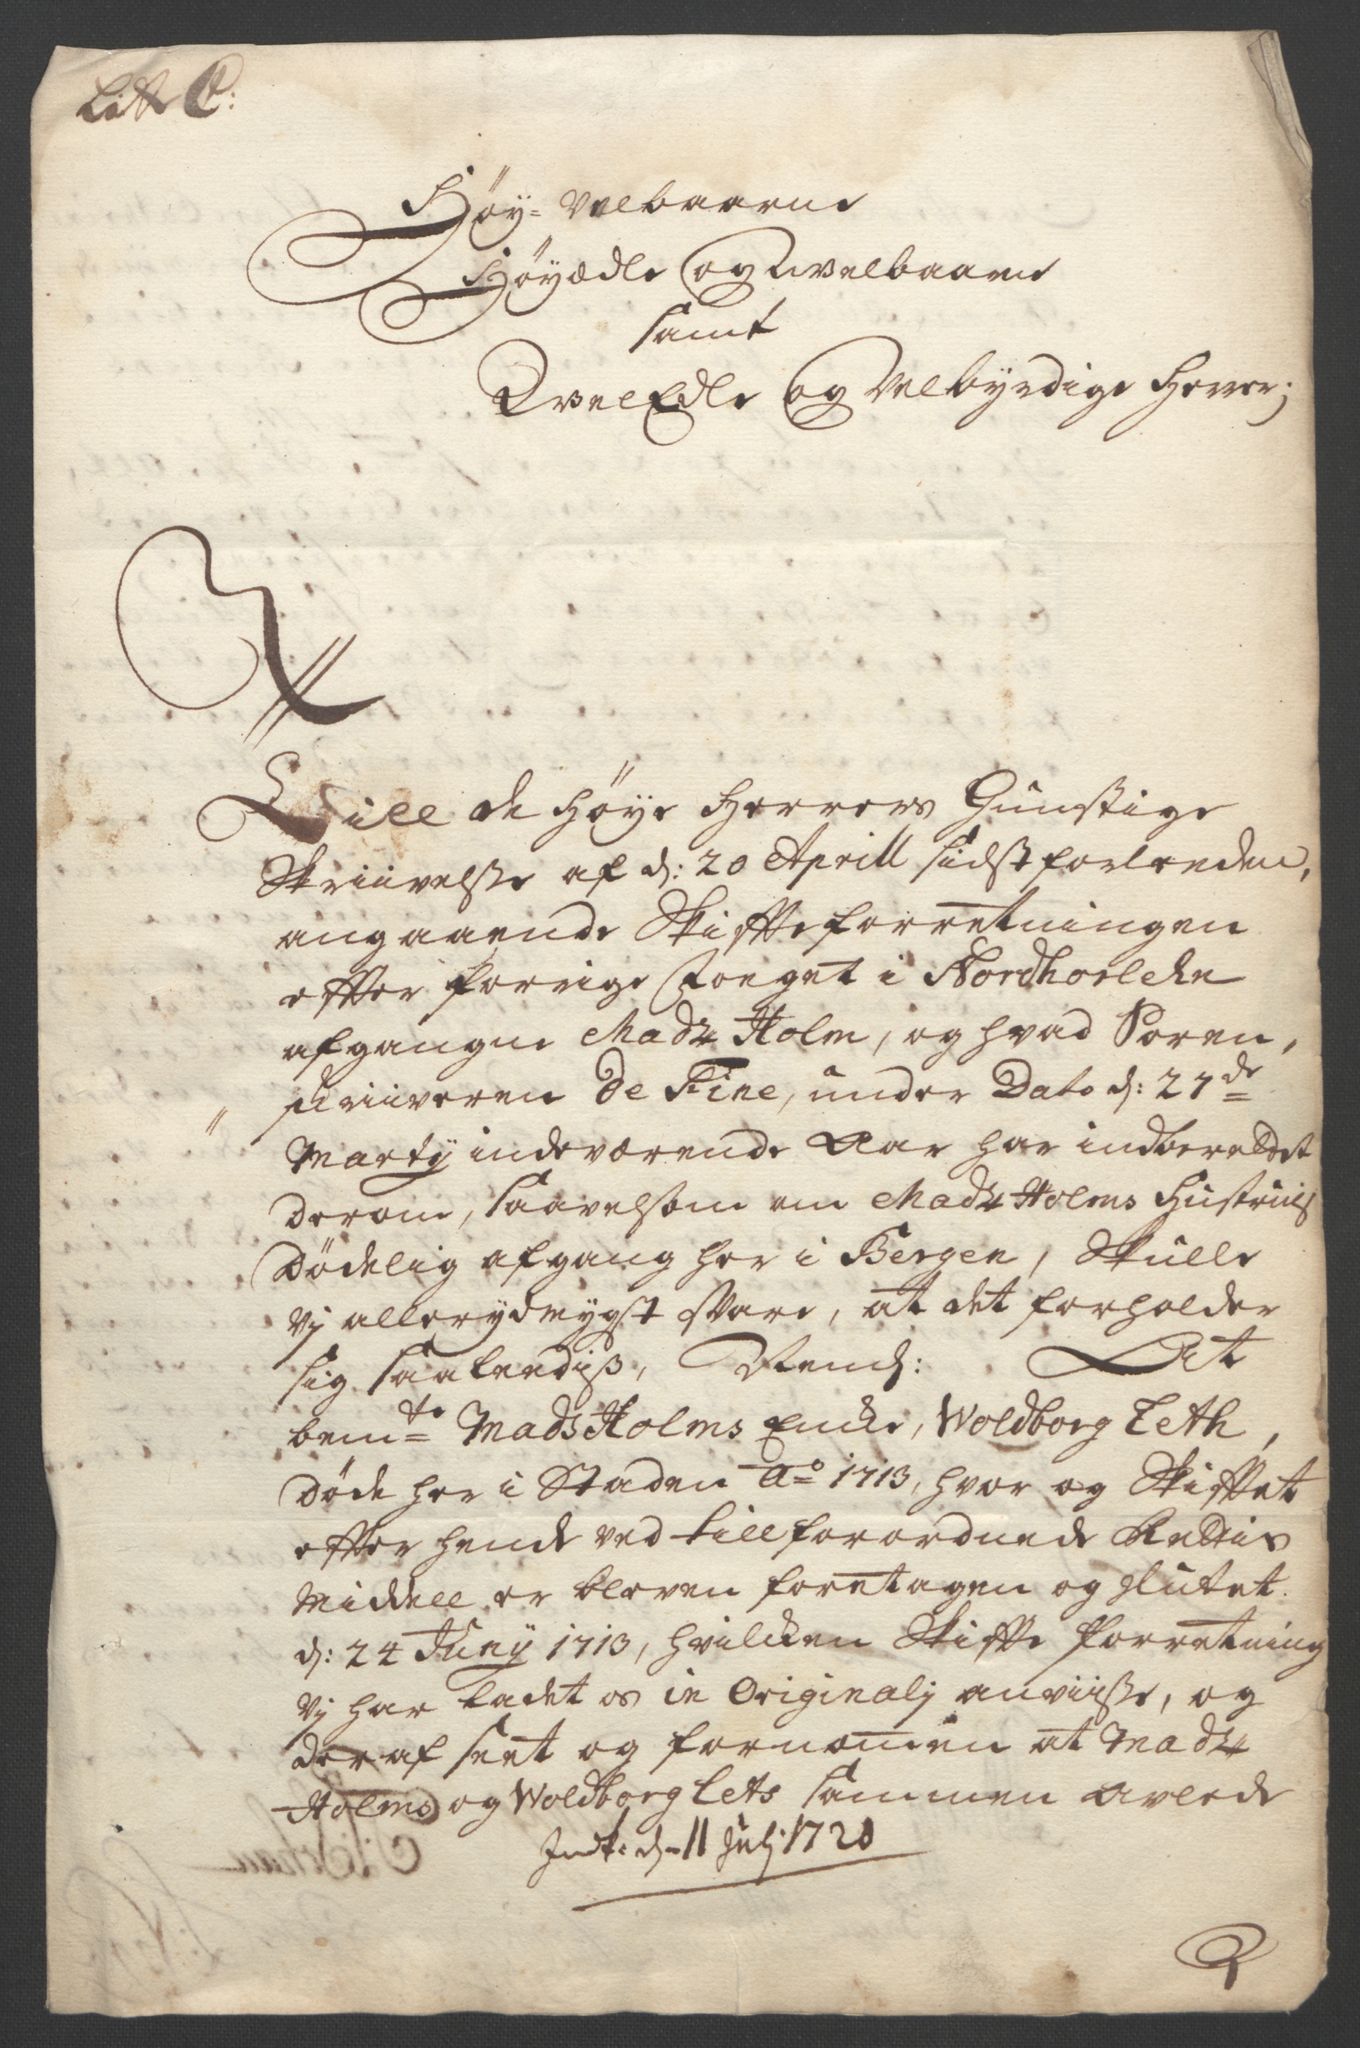 Litr C:
Høy-Velbaarne
Høyædle og Welbaarne
samt
WelEdle og Velbyrdige Herrer;
Till de Høye Herrers Gunstige
Skriivelsse af d: 20 Aprill sidst forleeden,
angaaende Skifteforretningen
efter forrige Foeget i Nordhorlehn
afgangne Mads Holm, og hvad Soren,
skriiveren De Fine, under Dato d: 27de
Marty indeværende Aar har indberettet
derom, saavelsom om Mads Holms Hustruis
Dødelig afgang her i Bergen, Skulle
vj allerydmygst svare, at det forholder
sig saaleediß, Nemb: At
bemte Mads Holms Encke, Woldborg Leth,
døde her i Staden Ao 1713, hvor og Skiftet
efter hende ved tillforordnede Rettis
Middell er bleven foretagen og slutet
d: 24 Juny 1713, hvilcken Skifte forretning
vj har ladet os in Originalj anviisse, og
deraf seet og fornommen at Mads
Holms og Woldborg Lets sammen avlede
Indk: d- 11 Julj 1720